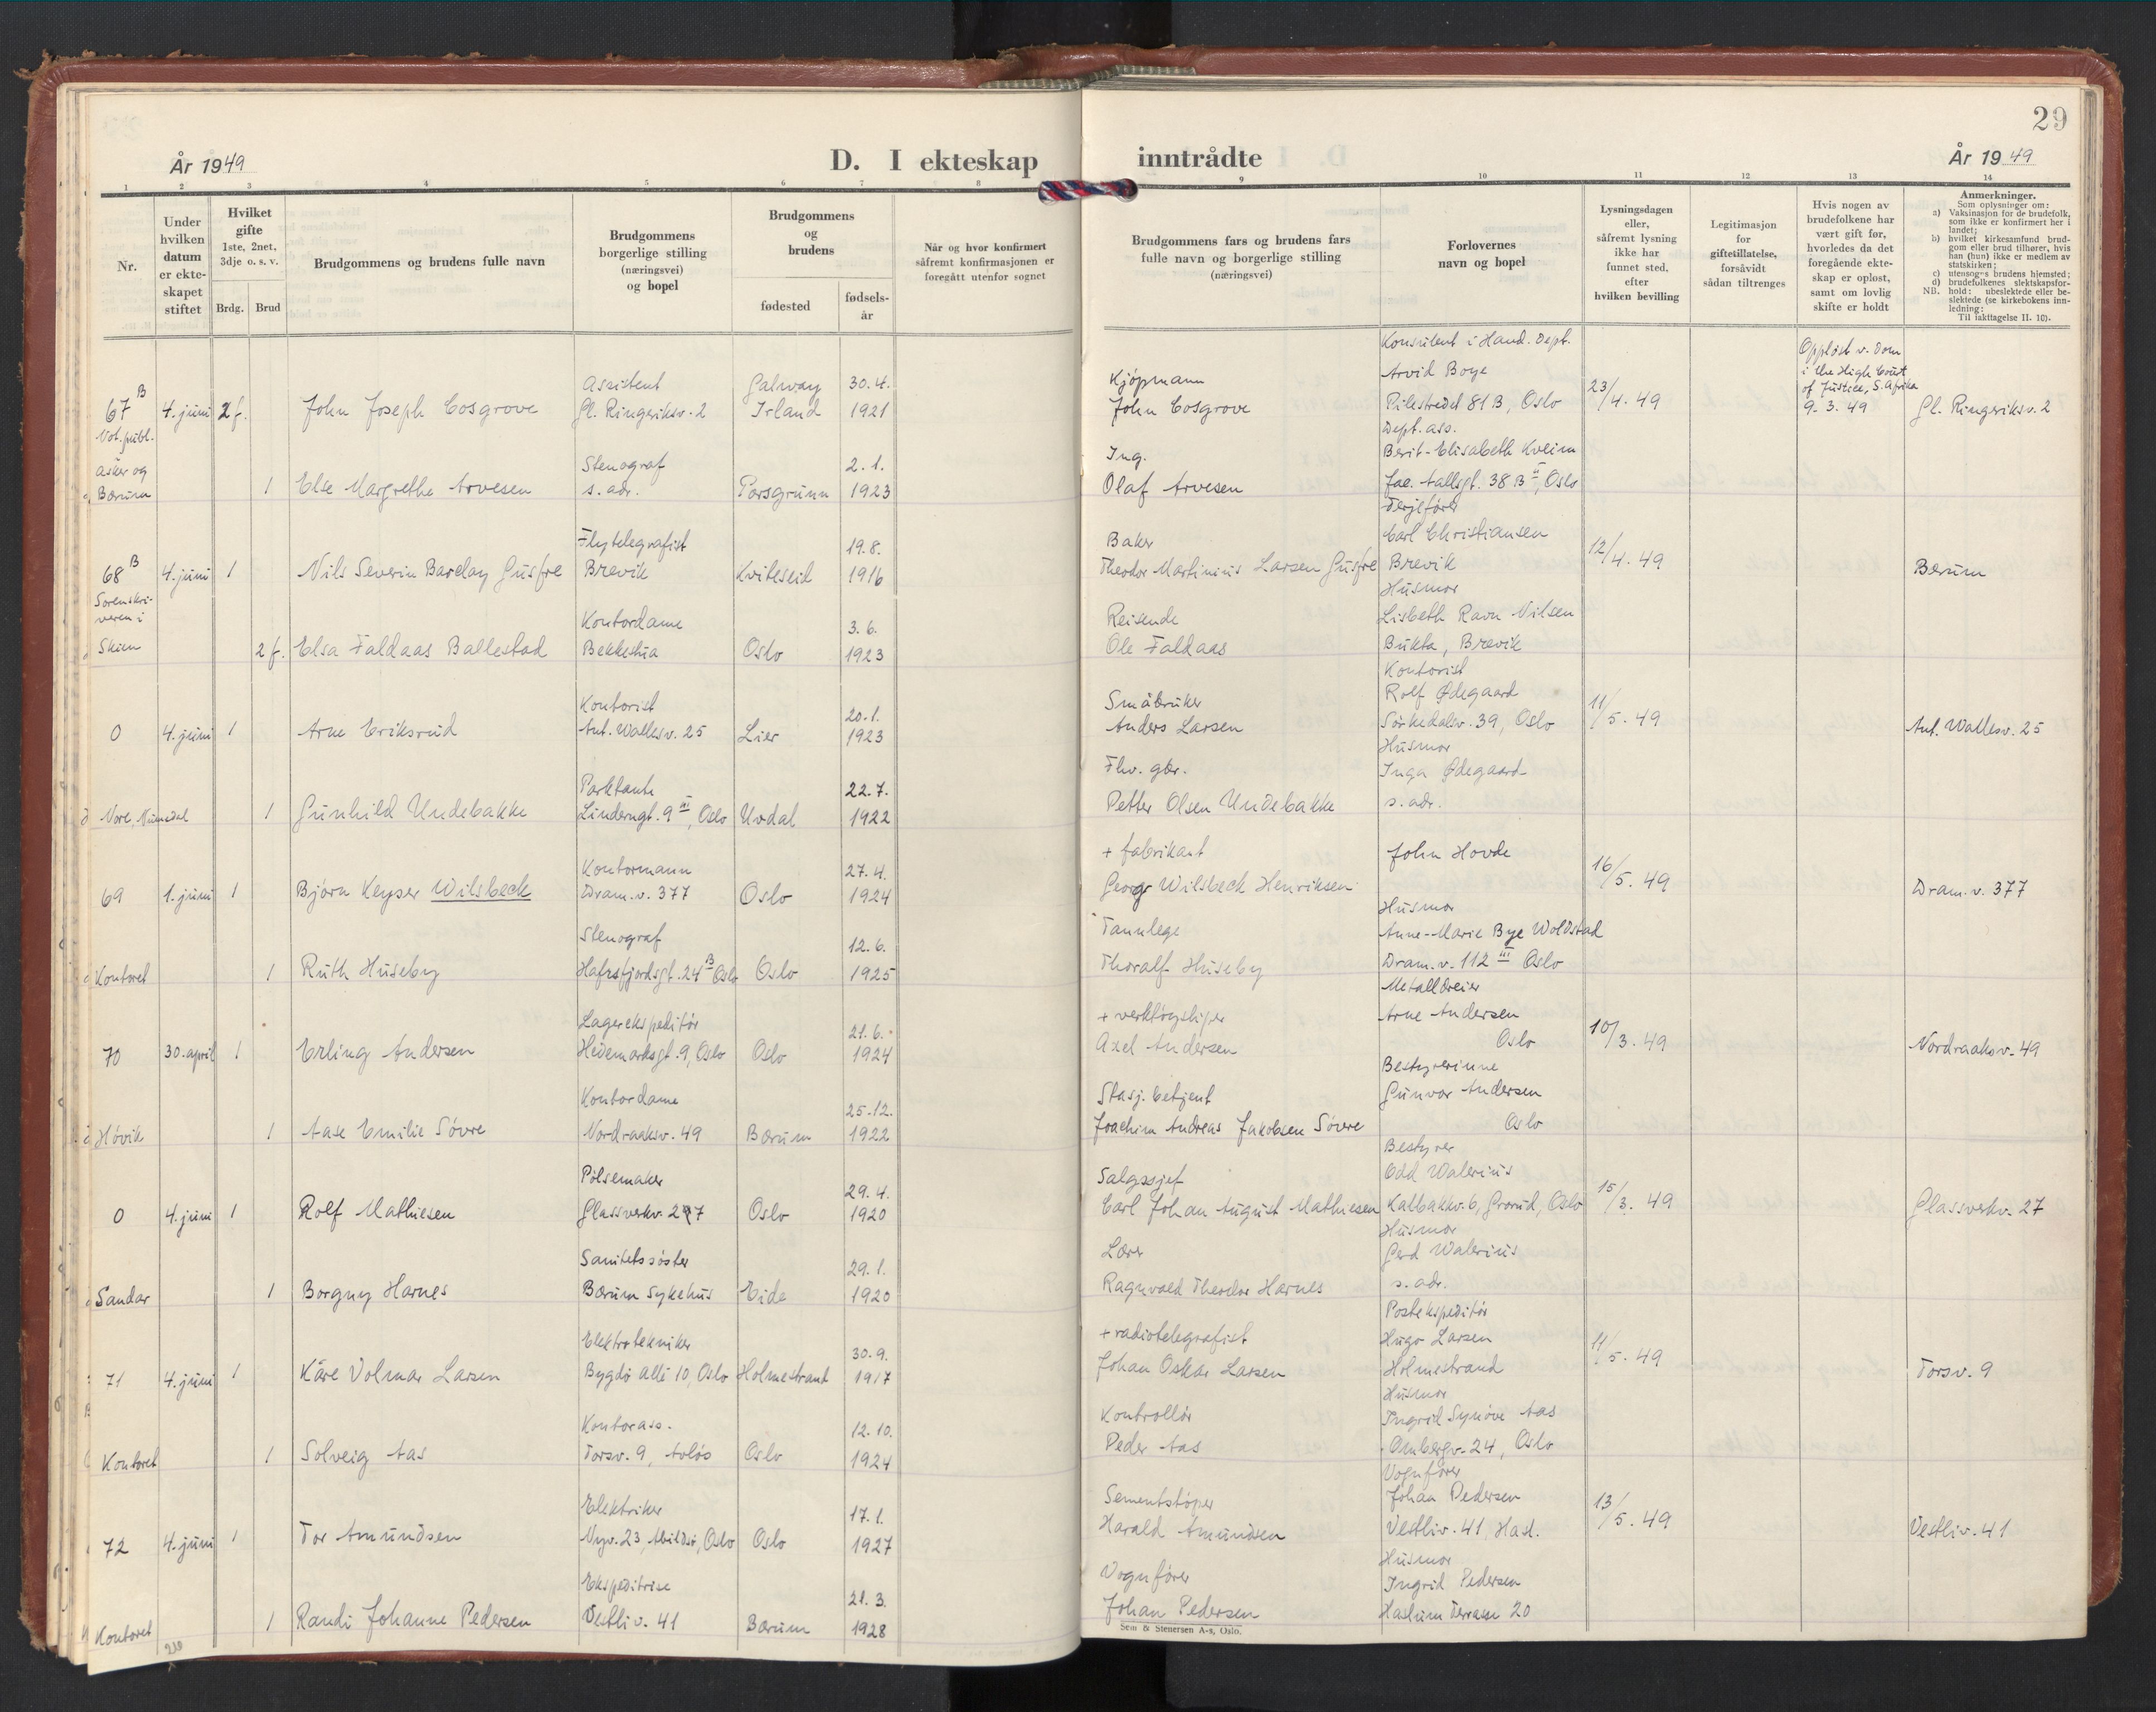 29
År 1949
D. I ekteskap
inntrådte
År 1949
1 2 3 4 5 6 7 8 9 10 11 12 13 14
Nr.
Under hvilken datum er ekteskapet stiftet
Hvilket gifte 1ste, 2net, 3dje o. s. v.
Brdg. Brud
Brudgommens og brudens fulle navn
Brudgommens borgerlige stilling (næringsvei) og bopel
Brudgommens og brudens
fødested
fødsels-år
Når og hvor konfirmert såfremt konfirmasjonen er foregått utenfor sognet
Brudgommens fars og brudens fars fulle navn og borgerlige stilling (næringsvei)
Forlovernes navn og bopel
Lysningsdagen eller, såfremt lysning ikke har funnet sted, efter hvilken bevilling
Legitimasjon for giftetillatelse, forsåvidt sådan tiltrenges
Hvis nogen av brudefolkene har vært gift før, hvorledes da det foregående ekteskap er opløst, samt om lovlig skifte er holdt
Anmerkninger.
Som oplysninger om:
a) Vaksinasjon for de brudefolk, som ikke er konfirmert her i landet;
b) hvilket kirkesamfund brudgom eller brud tilhører, hvis han (hun) ikke er medlem av statskirken;
c) utensogns brudens hjemsted;
d) brudefolkenes slektskapsforhold: ubeslektede eller beslektede (se kirkebokens innledning:
NB.
Til iakttagelse II. 10).
67 B 4. juni 2 f. John Joseph Cosgrove
Assistent
Gl. Ringeriksv. 2
Galway
Irland
30. 4.
1921
Kjøpmann
John Cosgrove
Konsulent i Hand. Dept.
Arvid Boye
Pilestredet 81 B, Oslo
23/4. 49
Oppløst v. dom
i the High Court
of Justice, S. Afrika
9. 3. 49
Gl. Ringeriksv. 2
Not. publ.
Asker og
Bærum
1 Else Margrethe Arvesen
Stenograf
s. adr.
Porsgrunn
2. 1.
1923
Ing.
Olaf Arvesen
Dept. ass.
Berit-Elisabeth Kveim
Jac. Aallsgt. 38 B II, Oslo
68 B 4. juni 1 Nils Severin Barclay Gusfre
Flytelegrafist
Brevik
Kviteseid
19. 8.
1916
Baker
Theodor Martinius Larsen Gusfre
Ferjefører
Carl Christiansen
Brevik
12/4. 49
Bærum
Sorenskri-
veren i
Skien
2 f. Elsa Faldaas Ballestad
Kontordame
Bekkestua
Oslo
3. 6.
1923
Reisende
Ole Faldaas
Husmor
Lisbeth Ravn Nilsen
Bukta, Brevik
0 4. juni 1 Arne Eriksrud
Kontorist
Ant. Wallesv. 25
Lier
20. 1.
1923
Småbruker
Anders Larsen
Kontorist
Rolf Ødegaard
Sørkedalsv. 39, Oslo
11/5. 49
Ant. Wallesv. 25
Nore, Numedal
1 Gunhild Undebakke
Parktante
Linderngt. 9 III, Oslo
Uvdal
22. 7.
1922
Fhv. gbr.
Petter Olsen Undebakke
Husmor
Inga Ødegaard
s. adr.
69 1. juni 1 Bjørn Keyser Wilsbeck
Kontormann
Dram. v. 377
Oslo
27. 4.
1924
+ fabrikant
Georg Wilsbeck Henriksen
John Hovde
16/5. 49
Dram. v. 377
Kontoret
1 Ruth Huseby
Stenograf
Hafrsfjordsgt. 24 B Oslo
Oslo
12. 6.
1925
Tannlege
Thoralf Huseby
Husmor
Anne-Marie Bye Woldstad
Dram. v. 112 III Oslo
70 30. april 1 Erling Andersen
Lagerekspeditør
Hedemarksgt. 9, Oslo
Oslo
21. 6.
1924
+ verktøysliper
Axel Andersen
Metalldreier
Arne Andersen
Oslo
10/3. 49
Nordraaksv. 49
Høvik
1 Aase Emilie Søvre
Kontordame
Nordraaksv. 49
Bærum
25. 12.
1922
Stasj. betjent
Joachim Andreas Jakobsen Søvre
Bestyrerinne
Gunvor Andersen
Oslo
0 4. juni 1 Rolf Mathiesen
Pølsemaker
Glassverkv. 27
Oslo
29. 4.
1920
Salgssjef
Carl Johan August Mathiesen
Bestyrer
Odd Walerius
Kalbakkv. 6, Grorud, Oslo
15/3. 49
Glassverkv. 27
Sandar
1 Borgny Harnes
Sanitetssøster
Bærum sykehus
Eide
29. 1.
1920
Lærer
Ragnvald Theodor Harnes
Husmor
Gerd Walerius
s. adr.
71 4. juni 1 Kåre Volmar Larsen
Elektrotekniker
Bygdø allé 10, Oslo
Holmestrand
30. 9.
1917
+ radiotelegrafist
Johan Oskar Larsen
Postekspeditør
Hugo Larsen
Holmestrand
11/5. 49
Torsv. 9
Kontoret
1 Solveig Aas
Kontorass.
Torsv. 9, Avløs
Oslo
12. 10.
1924
Kontrollør
Peder Aas
Husmor
Ingrid Synøve Aas
Ombergv. 24, Oslo
72 4. juni 1 Tor Amundsen
Elektriker
Nyv. 23, Abildsø, Oslo
Oslo
17. 1.
1927
Sementstøper
Harald Amundsen
Vognfører
Johan Pedersen
Vestliv. 41, Hasl.
13/5. 49
Vestliv. 41
Kontoret
1 Randi Johanne Pedersen
Ekspeditrise
Vestliv. 41
Bærum
21. 3.
1928
Vognfører
Johan Pedersen
Husmor
Ingrid Pedersen
Haslum Terrasse 20
Sem & Stenersen A-s, Oslo.